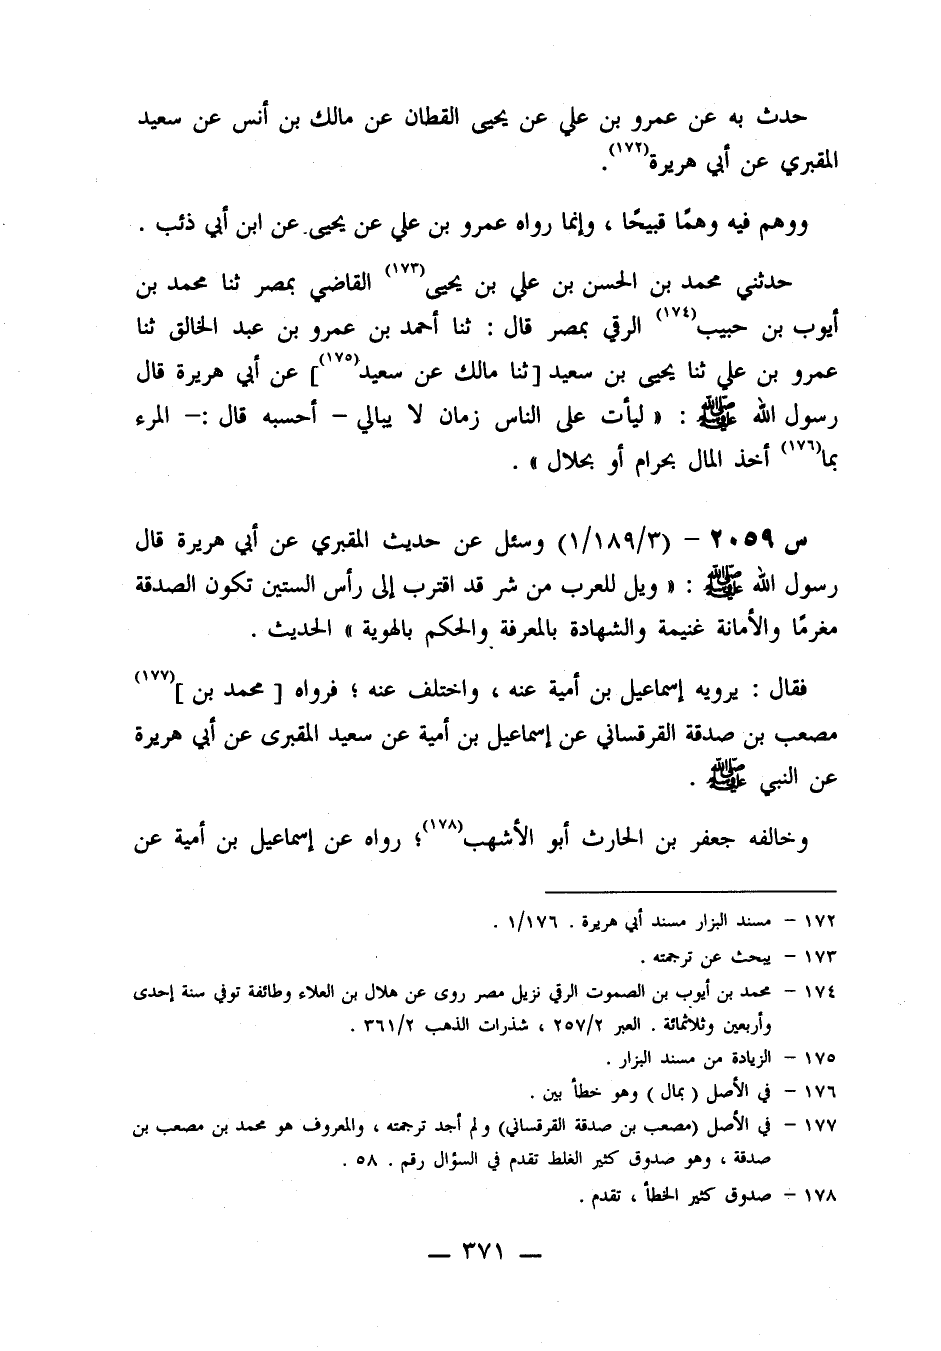 حدث به عن عمرو بن علي عن يحيى القطان عن مالك بن أنس عن سعيد
المقبري عن أبي هريرة(١٧٢).
ووهم فيه وهمًا قبيحًا ، وإنما رواه عمرو بن علي عن يحيى عن ابن أبي ذئب .
حدثني محمد بن الحسن بن علي بن يحيى(١٧٣) القاضي بمصر ثنا محمد بن
أيوب بن حبيب(١٧٤) الرقي بمصر قال : ثنا أحمد بن عمرو بن عبد الخالق ثنا
عمرو بن علي ثنا يحيى بن سعيد [ثنا مالك عن سعيد(١٧٥)] عن أبي هريرة قال
رسول الله ﷺ : « ليأت على الناس زمان لا يبالي – أحسبه قال :– المرء
بما(١٧٦) أخذ المال بحرام أو بحلال » .
س ٢٠٥٩ – (١/١٨٩/٣) وسئل عن حديث المقبري عن أبي هريرة قال
رسول الله ﷺ : « ويل للعرب من شر قد اقترب إلى رأس الستين تكون الصدقة
مغرمًا والأمانة غنيمة والشهادة بالمعرفة والحكم بالهوية » الحديث .
فقال : يرويه إسماعيل بن أمية عنه ، واختلف عنه ؛ فرواه [ محمد بن ](١٧٧)
مصعب بن صدقة القرقساني عن إسماعيل بن أمية عن سعيد المقبرى عن أبي هريرة
عن النبي ﷺ .
وخالفه جعفر بن الحارث أبو الأشهب(١٧٨)؛ رواه عن إسماعيل بن أمية عن
١٧٢ – مسند البزار مسند أبي هريرة . ١/١٧٦ .
١٧٣ – يبحث عن ترجمته .
١٧٤ – محمد بن أيوب بن الصموت الرقي نزيل مصر روى عن هلال بن العلاء وطائفة توفي سنة إحدى
وأربعين وثلاثمائة . العبر ٢٥٧/٢ ، شذرات الذهب ٣٦١/٢ .
١٧٥ – الزيادة من مسند البزار .
١٧٦ – في الأصل ( بمال ) وهو خطأ بين .
١٧٧ – في الأصل (مصعب بن صدقة القرقساني) ولم أجد ترجمته ، والمعروف هو محمد بن مصعب بن
صدقة ، وهو صدوق كثير الغلط تقدم في السؤال رقم . ٥٨ .
١٧٨ – صدوق كثير الخطأ ، تقدم .
— ٣٧١ —